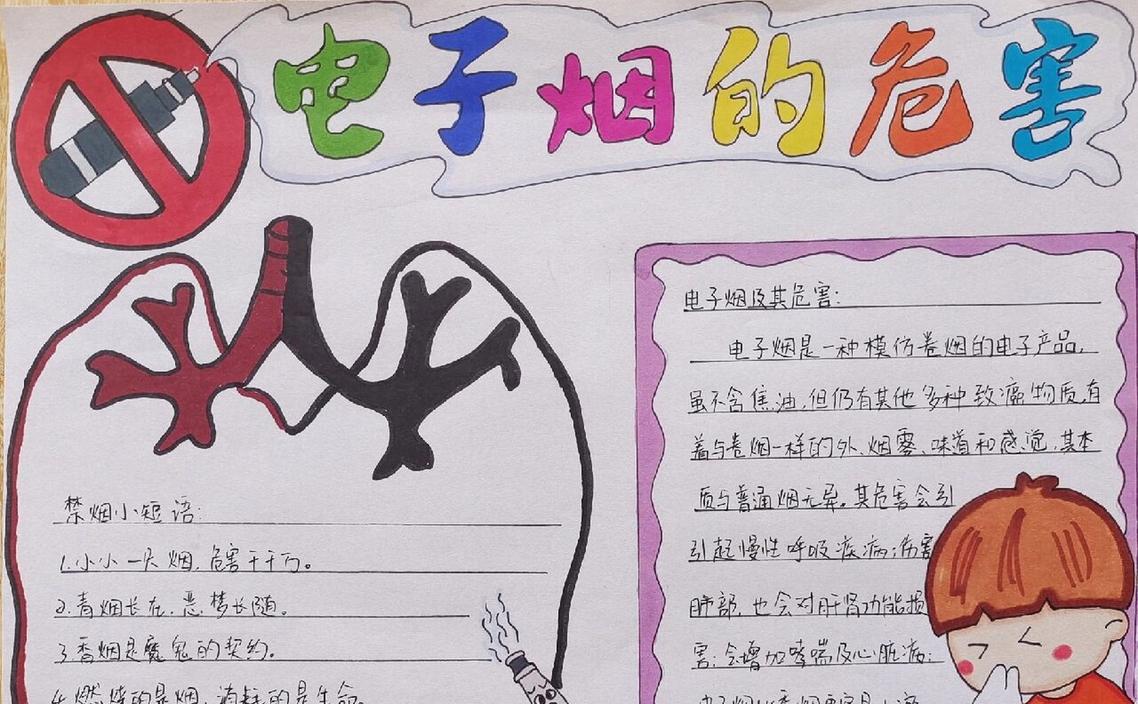 电子烟的危害
禁烟小短语:
1.小小一只烟,危害千千万。
2.青烟长在,恶梦长随。
3.香烟是魔鬼的契约。
4.燃烧的是烟,消耗的是生命
电子烟及其危害:
电子烟是一种模仿卷烟的电子产品,
虽不含焦油,但仍有其他多种致癌物质,有
着与卷烟一样的外,烟雾、味道和感觉,其本
质与普通烟无异。其危害会引
引起慢性呼吸疾病;伤害
肺部,也会对肝肾功能损
害;会增加哮喘及心脏病;